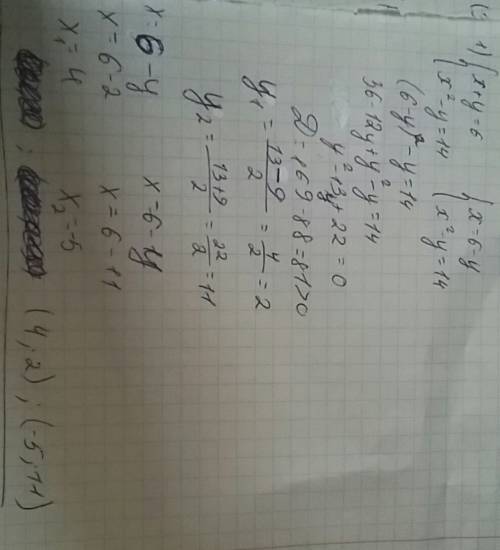 1) { x+y=6 { x=6-y
{ x²-y=14 { x²-y=14
(6-y)²-y=14
36-12y+y²-y=14
y²-13y+22=0
D=169-88=81>0
y₁= (13-9)/2 = 4/2 =2
y₂= (13+9)/2 = 22/2 =11
x=6-y x=6-y
x=6-2 x=6-11
x₁=4 x₂=-5
; (4;2);(-5;11)